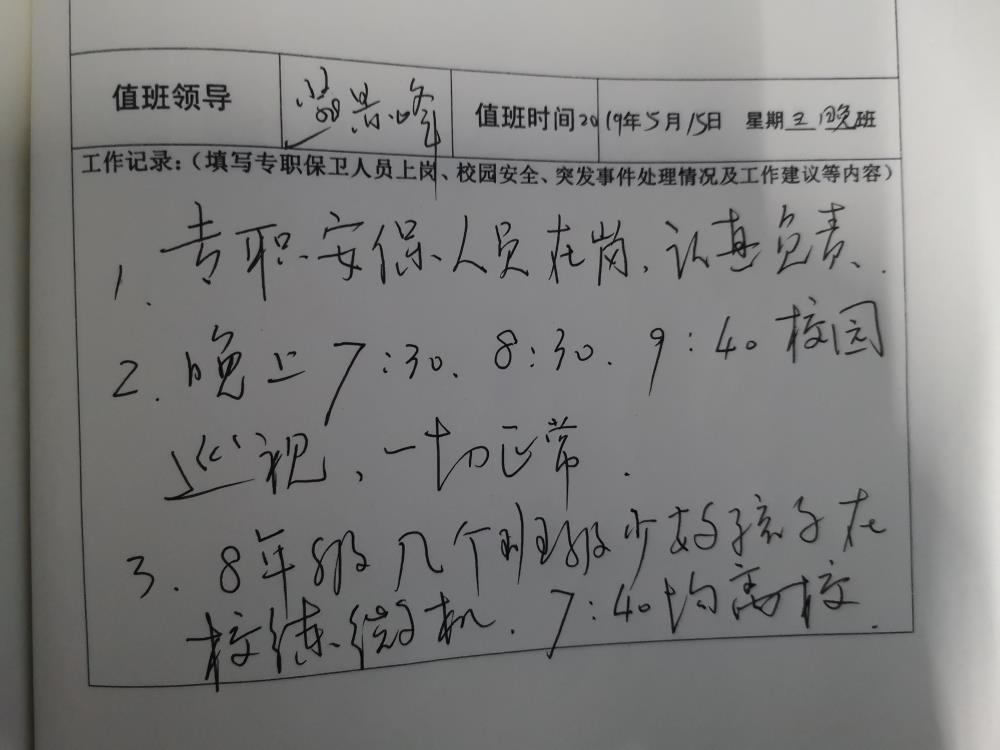 值班领导 景峰 值班时间2019年5月15日 星期三晚班
工作记录:(填写专职保卫人员上岗、校园安全、突发事件处理情况及工作建议等内容)
1. 专职安保人员在岗,认真负责、.
2. 晚上7:30. 8:30. 9:40校园
巡视、一切正常.
3. 8年级几个班级少数孩子在
校练微机. 7:40均离校.